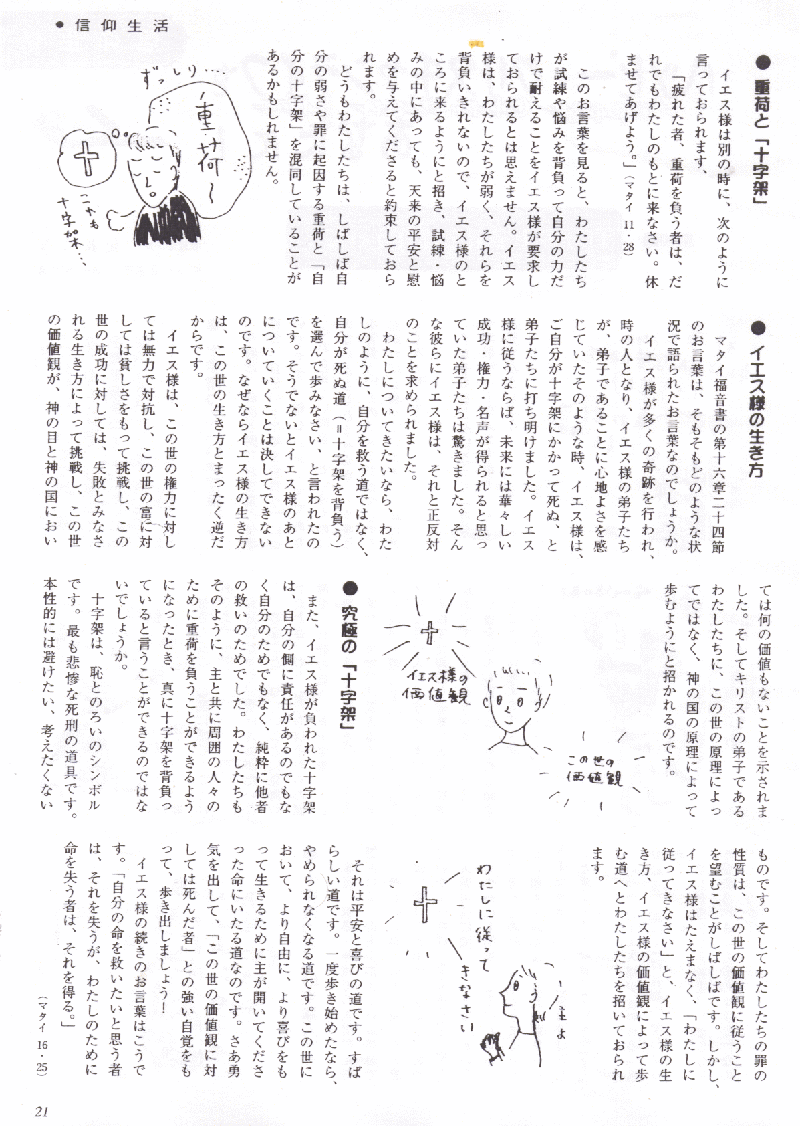 ● 信仰生活
● 重荷と「十字架」
イエス様は別の時に、次のように
言っておられます、
「疲れた者、重荷を負う者は、だ
れでもわたしのもとに来なさい。休
ませてあげよう。」（マタイ 11・28）
このお言葉を見ると、わたしたち
が試練や悩みを背負って自分の力だ
けで耐えることをイエス様が要求し
ておられるとは思えません。イエス
様は、わたしたちが弱く、それらを
背負いきれないので、イエス様のと
ころに来るようにと招き、試練・悩
みの中にあっても、天来の平安と慰
めを与えてくださると約束しておら
れます。
どうもわたしたちは、しばしば自
分の弱さや罪に起因する重荷と「自
分の十字架」を混同していることが
あるかもしれません。
ずっしり....
重荷〜
これも
十字架...
● イエス様の生き方
マタイ福音書の第十六章二十四節
のお言葉は、そもそもどのような状
況で語られたお言葉なのでしょうか。
イエス様が多くの奇跡を行われ、
時の人となり、イエス様の弟子たち
が、弟子であることに心地よさを感
じていたそのような時、イエス様は、
ご自分が十字架にかかって死ぬ、と
弟子たちに打ち明けました。イエス
様に従うならば、未来には華々しい
成功・権力・名声が得られると思っ
ていた弟子たちは驚きました。そん
な彼らにイエス様は、それと正反対
のことを求められました。
わたしについてきたいなら、わた
しのように、自分を救う道ではなく、
自分が死ぬ道（＝十字架を背負う）
を選んで歩みなさい、と言われたの
です。そうでないとイエス様のあと
についていくことは決してできない
のです。なぜならイエス様の生き方
は、この世の生き方とまったく逆だ
からです。
イエス様は、この世の権力に対し
ては無力で対抗し、この世の富に対
しては貧しさをもって挑戦し、この
世の成功に対しては、失敗とみなさ
れる生き方によって挑戦し、この世
の価値観が、神の目と神の国におい
ては何の価値もないことを示されま
した。そしてキリストの弟子である
わたしたちに、この世の原理によっ
てではなく、神の国の原理によって
歩むようにと招かれるのです。
イエス様の
価値観
この世の
価値観
● 究極の「十字架」
また、イエス様が負われた十字架
は、自分の側に責任があるのでもな
く自分のためでもなく、純粋に他者
の救いのためでした。わたしたちも
そのように、主と共に周囲の人々の
ために重荷を負うことができるよう
になったとき、真に十字架を背負っ
ていると言うことができるのではな
いでしょうか。
十字架は、恥とのろいのシンボル
です。最も悲惨な死刑の道具です。
本性的には避けたい、考えたくない
ものです。そしてわたしたちの罪の
性質は、この世の価値観に従うこと
を望むことがしばしばです。しかし、
イエス様はたえまなく、「わたしに
従ってきなさい」と、イエス様の生
き方、イエス様の価値観によって歩
む道へとわたしたちを招いておられ
ます。
わたしに従って
きなさい
主よ
それは平安と喜びの道です。すば
らしい道です。一度歩き始めたなら、
やめられなくなる道です。この世に
おいて、より自由に、より喜びをも
って生きるために主が開いてくださ
った命にいたる道なのです。さあ勇
気を出して、「この世の価値観に対
しては死んだ者」との強い自覚をも
って、歩き出しましょう！
イエス様の続きのお言葉はこうで
す。「自分の命を救いたいと思う者
は、それを失うが、わたしのために
命を失う者は、それを得る。」
（マタイ 16・25）
21